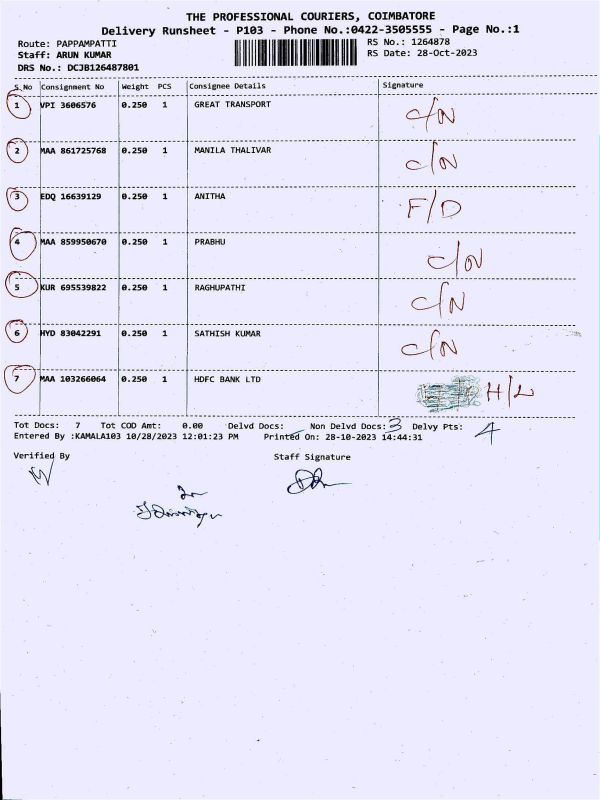 THE PROFESSIONAL COURIERS, COIMBATORE
Delivery Runsheet - P103 - Phone No.:0422-3505555 - Page No.:1
Route: PAPPAMPATTI RS No.: 1264878
Staff: ARUN KUMAR RS Date: 28-Oct-2023
DRS No.: DCJB126487801
S.No Consignment No Weight PCS Consignee Details Signature
1 VPI 3606576 0.250 1 GREAT TRANSPORT C/N
2 MAA 861725768 0.250 1 MANILA THALIVAR C/N
3 EDQ 16639129 0.250 1 ANITHA F/D
4 MAA 859950670 0.250 1 PRABHU C/N
5 KUR 695539822 0.250 1 RAGHUPATHI C/N
6 HYD 83042291 0.250 1 SATHISH KUMAR C/N
7 MAA 103266064 0.250 1 HDFC BANK LTD H/L
Tot Docs: 7 Tot COD Amt: 0.00 Delvd Docs: Non Delvd Docs: 3 Delvy Pts: 4
Entered By :KAMALA103 10/28/2023 12:01:23 PM Printed On: 28-10-2023 14:44:31
Verified By Staff Signature